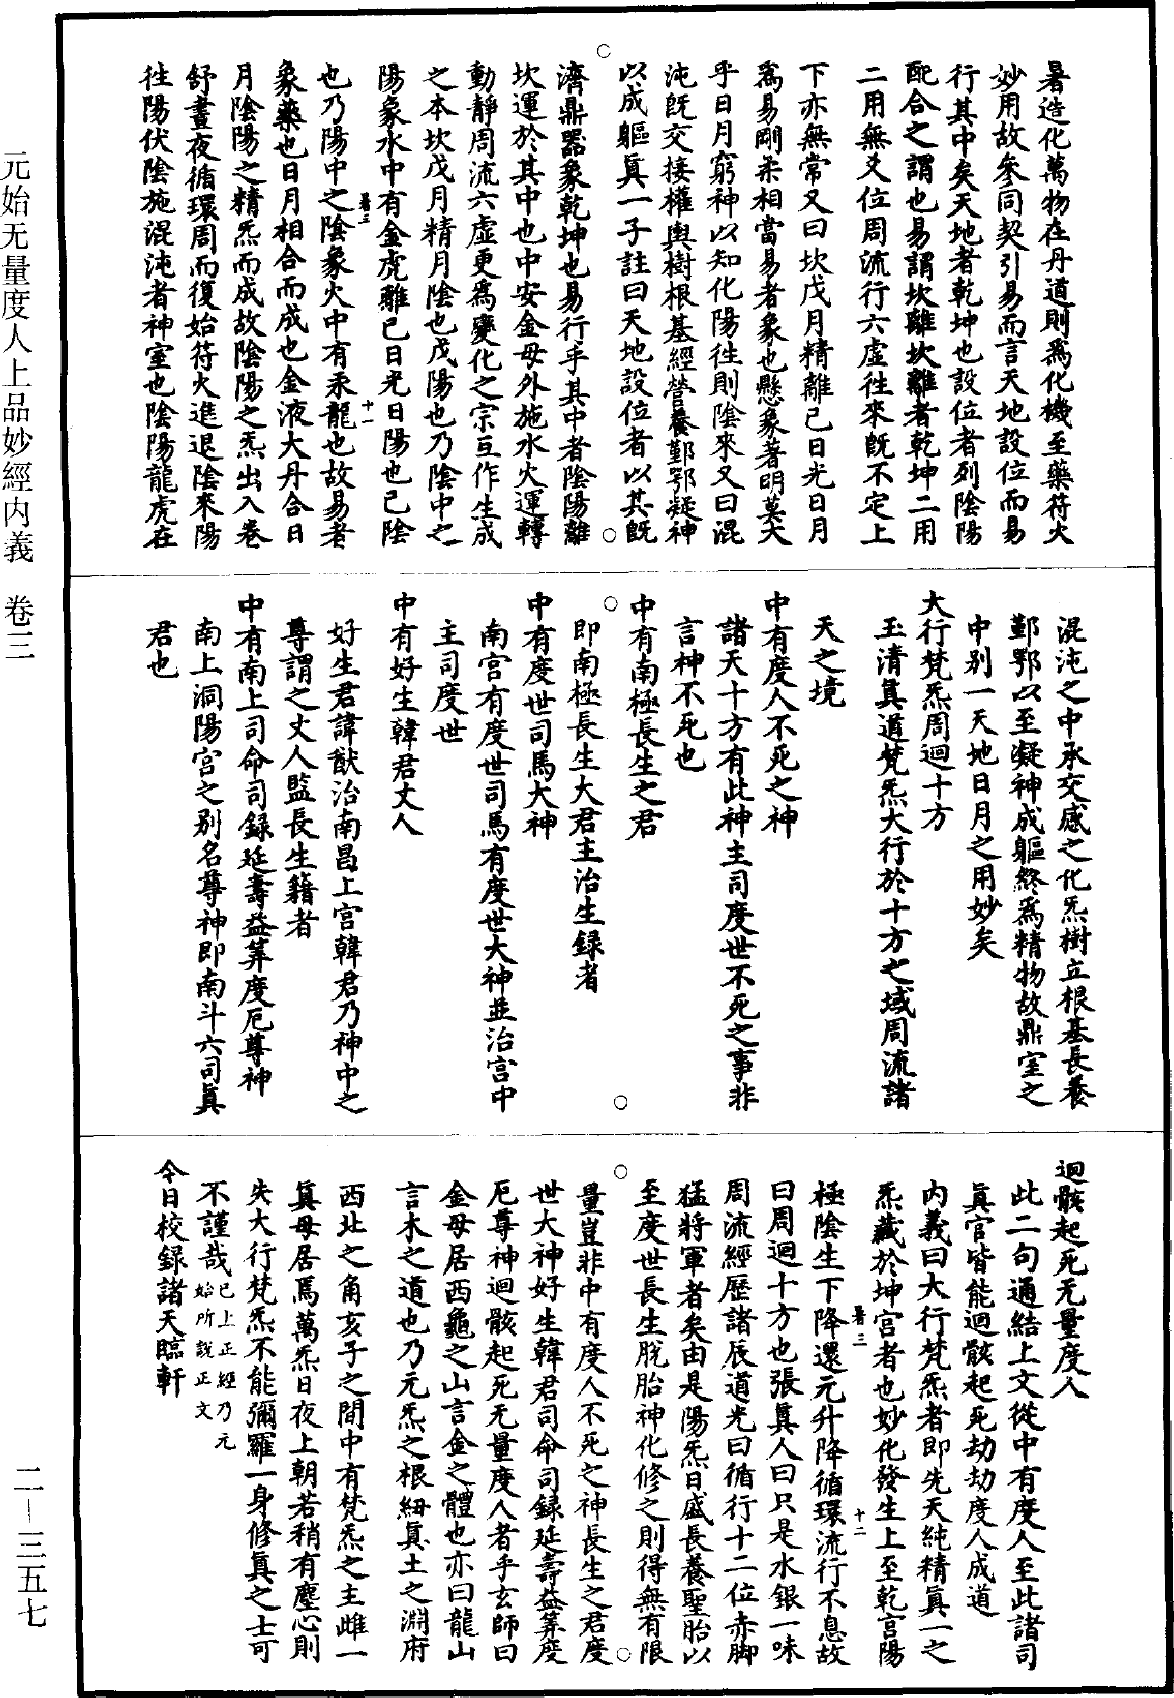 暑造化萬物在丹道則爲化機至藥符火
妙用故參同契引易而言天地設位而易
行其中矣天地者乾坤也設位者列陰陽
配合之謂也易謂坎離坎離者乾坤二用
二用無爻位周流行六虛往來既不定上
下亦無常又曰坎戊月精離己日光日月
爲易剛柔相當易者象也懸象著明莫大
乎日月窮神以知化陽往則陰來又曰混
沌既交接權輿樹根基經營養鄞鄂凝神
以成軀眞一子註曰天地設位者以其既
濟鼎器象乾坤也易行乎其中者陰陽離
坎運於其中也中安金母外施水火運轉
動靜周流六虛更爲變化之宗互作生成
之本坎戊月精月陰也戊陽也乃陰中之
陽象水中有金虎離己日光日陽也己陰
暑三
十一
也乃陽中之陰象火中有汞龍也故易者
象藥也日月相合而成也金液大丹合日
月陰陽之精炁而成故陰陽之炁出入卷
舒晝夜循環周而復始符火進退陰來陽
往陽伏陰施混沌者神室也陰陽龍虎在
混沌之中承交感之化炁樹立根基長養
鄞鄂以至凝神成軀終爲精物故鼎室之
中別一天地日月之用妙矣
大行梵炁周迴十方
玉清眞道梵炁大行於十方之域周流諸
天之境
中有度人不死之神
諸天十方有此神主司度世不死之事非
言神不死也
中有南極長生之君
即南極長生大君主治生録者
中有度世司馬大神
南宮有度世司馬有度世大神並治宮中
主司度世
中有好生韓君丈人
好生君諱猷治南昌上宮韓君乃神中之
尊謂之丈人監長生籍者
中有南上司命司録延壽益筭度厄尊神
南上洞陽宮之別名尊神即南斗六司眞
君也
迴骸起死无量度人
此二句通結上文從中有度人至此諸司
眞官皆能迴骸起死劫劫度人成道
内義曰大行梵炁者即先天純精眞一之
炁藏於坤宮者也妙化發生上至乾宮陽
暑三
十二
極陰生下降還元升降循環流行不息故
曰周迴十方也張眞人曰只是水銀一味
周流經歷諸辰道光曰循行十二位赤脚
猛將軍者矣由是陽炁日盛長養聖胎以
至度世長生脫胎神化修之則得無有限
量豈非中有度人不死之神長生之君度
世大神好生韓君司命司録延壽益筭度
厄尊神迴骸起死无量度人者乎玄師曰
金母居西龜之山言金之體也亦曰龍山
言木之道也乃元炁之根紐眞土之淵府
西北之角亥子之間中有梵炁之主雌一
眞母居焉萬炁日夜上朝若稍有塵心則
失大行梵炁不能彌羅一身修眞之士可
不謹哉已上正經乃元
始所說正文
今日校録諸天臨軒
元始无量度人上品妙經内義 卷三
二—三五七